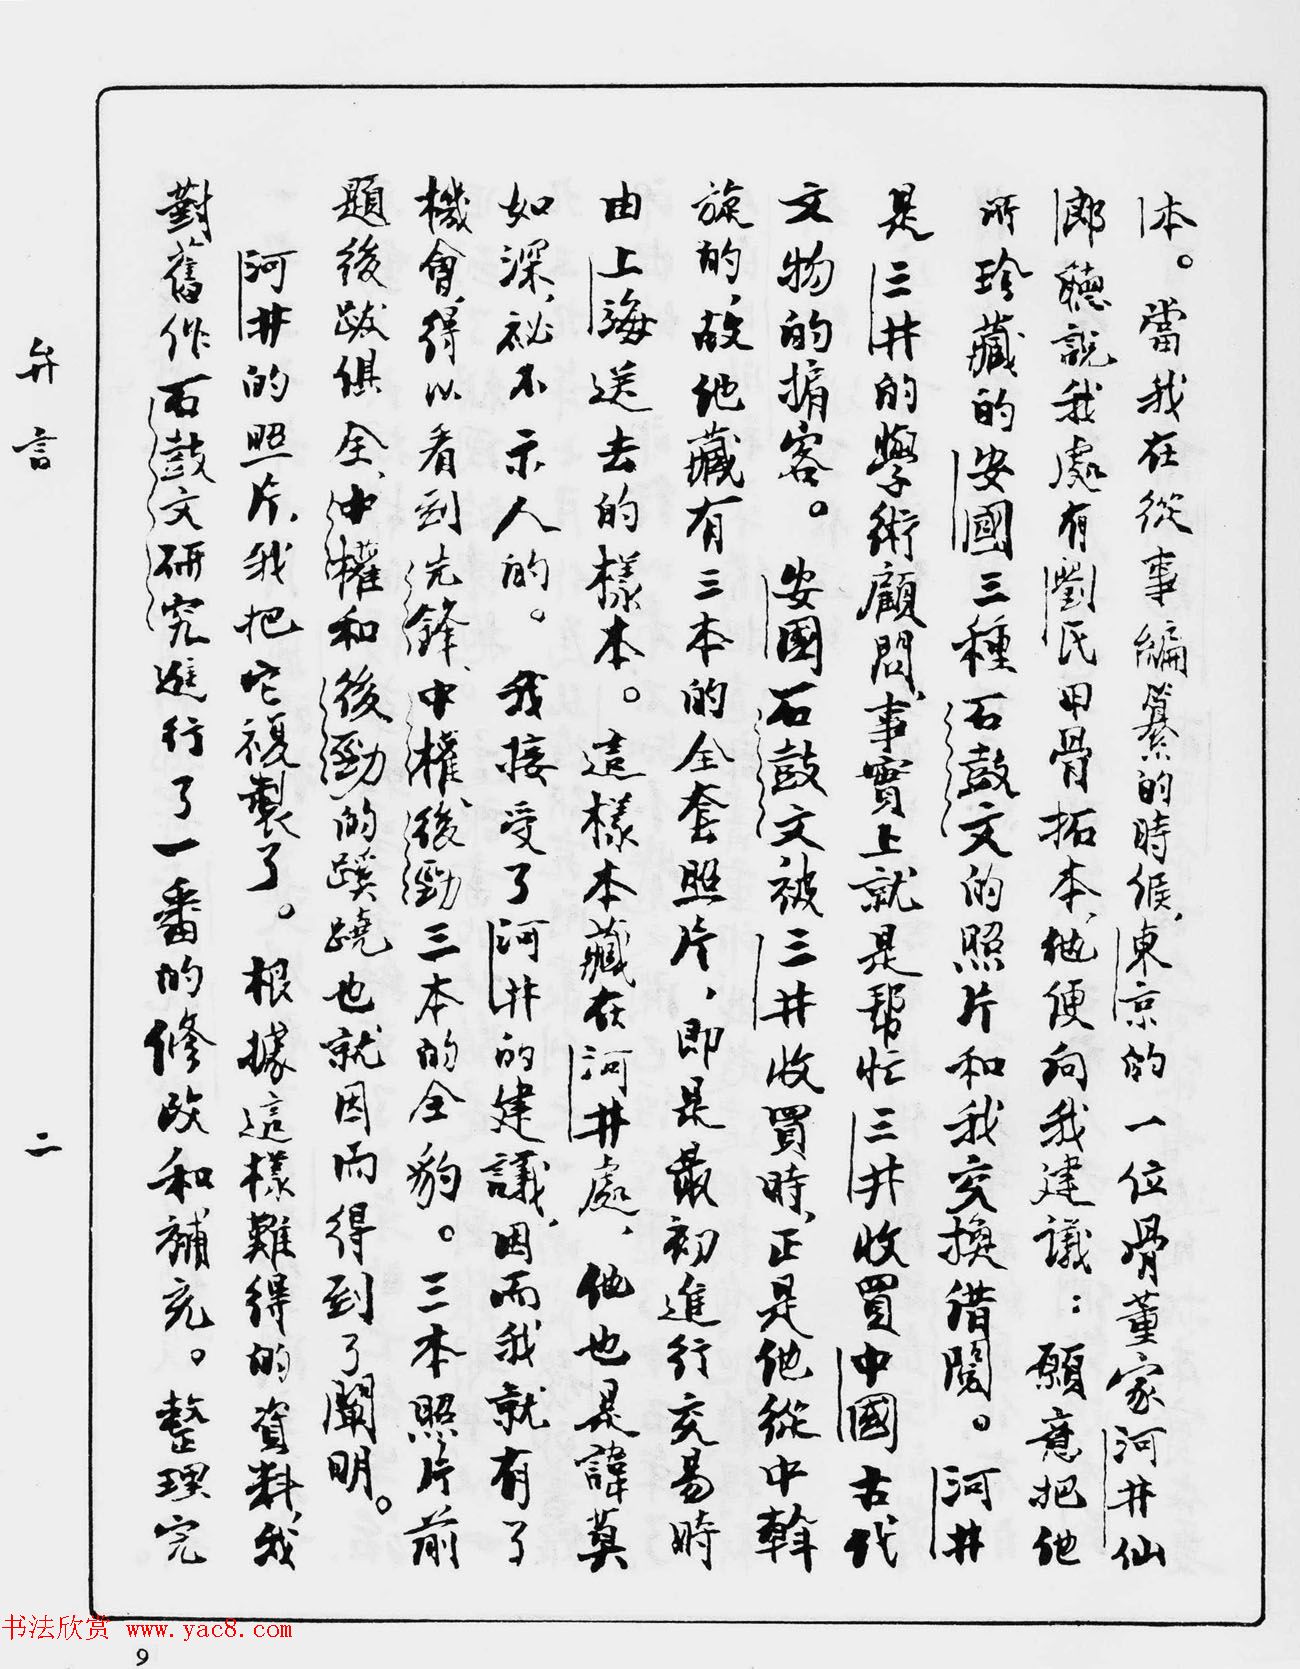 本。當我在從事編纂的時候，東京的一位骨董家河井仙
郎聽說我處有劉氏甲骨拓本，他便向我建議：願意把他
所珍藏的安國三種石鼓文的照片和我交換借閱。河井
是三井的學術顧問，事實上就是幫忙三井收買中國古代
文物的掮客。安國石鼓文被三井收買時，正是他從中斡
旋的，故他藏有三本的全套照片，即是最初進行交易時
由上海送去的樣本。這樣本藏在河井處，他也是諱莫
如深，祕不示人的。我接受了河井的建議，因而我就有了
機會，得以看到先鋒、中權、後勁三本的全豹。三本照片前
題後跋俱全，中權和後勁的蹊蹺也就因而得到了闡明。
河井的照片，我把它複製了。根據這樣難得的資料，我
對舊作石鼓文研究進行了一番的修改和補充。整理完
弁言
二
书法欣赏 www.yac8.com
9